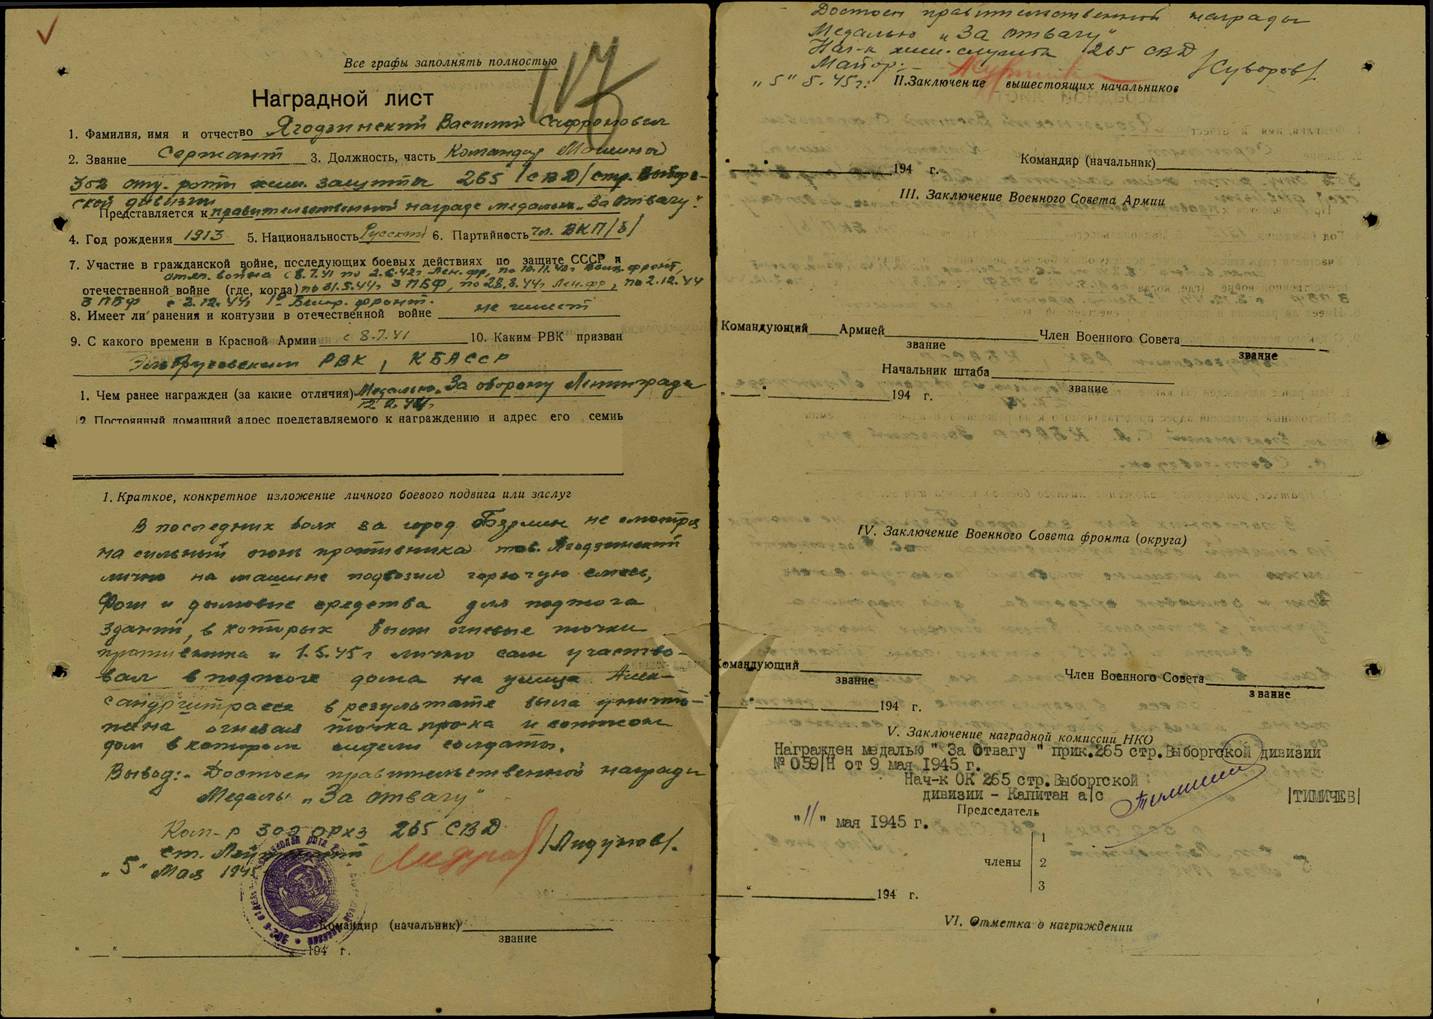 117
Все графы заполнять полностью
Наградной лист
1. Фамилия, имя и отчество Ягодзинский Василий Сафронович
2. Звание Сержант 3. Должность, часть Командир Машины
302 отд. роты хим. защиты 265 /СВД/ стр. Выборг-
ской дивизии
Представляется к правительственной награде медалью „За Отвагу".
4. Год рождения 1913 5. Национальность Русский 6. Партийность чл. ВКП/б/
7. Участие в гражданской войне, последующих боевых действиях по защите СССР и
отеч. война с 8.7.41 по 2.6.42г Лен.фр, по 10.11.43г фронт,
отечественной войне (где, когда) по 31.5.44г 3 ПБФ, по 28.8.44г Лен.фр, по 2.12.44
3 ПБФ с 3.12.44г 1й Белор. фронт.
8. Имеет ли ранения и контузии в отечественной войне не имеет
9. С какого времени в Красной Армии с 8.7.41 10. Каким РВК призван
РВК, КБАССР
1. Чем ранее награжден (за какие отличия) Медалью „За оборону Ленинграда
2. Постоянный домашний адрес представляемого к награждению и адрес его семьи
I. Краткое, конкретное изложение личного боевого подвига или заслуг
В последних боях за город Берлин не смотря
на сильный огонь противника тов. Ягодзинский
лично на машине подвозил горючую смесь,
Фош и дымовые средства для поджога
зданий, в которых были огневые точки
противника и 1.5.45г лично сам участво-
вал в поджоге дома на улица Алек-
сандрштрассе в результате была уничто-
жена огневая точка пр-ка и сожжон
дом в котором сидели солдаты.
Вывод:- Достоен правительственной награды
Медалы „За отвагу"
Ком-р 302 орхз 265 СВД
ст. Лейтенант /Лидунов/.
„5" Мая 1945
Командир (начальник)
звание
" " 194 г.
Достоен правительственной награды
Медалью „За отвагу"
Нач-к хим. службы 265 СВД
Майор:- /Суворов/.
„5" 5.45г.
II. Заключение вышестоящих начальников
194 г. Командир (начальник)
звание
III. Заключение Военного Совета Армии
Командующий Армией Член Военного Совета
звание звание
Начальник штаба
звание
" " 194 г.
IV. Заключение Военного Совета фронта (округа)
Командующий Член Военного Совета
звание звание
194 г.
V. Заключение наградной комиссии НКО
Награжден медалью "За Отвагу" прик.265 стр.Выборгской дивизии
№ 059/Н от 9 мая 1945 г.
Нач-к ОК 265 стр.Выборгской
дивизии - Капитан а/с /ТИМИЧЕВ/
Председатель
"11" мая 1945 г.
члены 1
2
3
" 194 г.
VI. Отметка о награждении